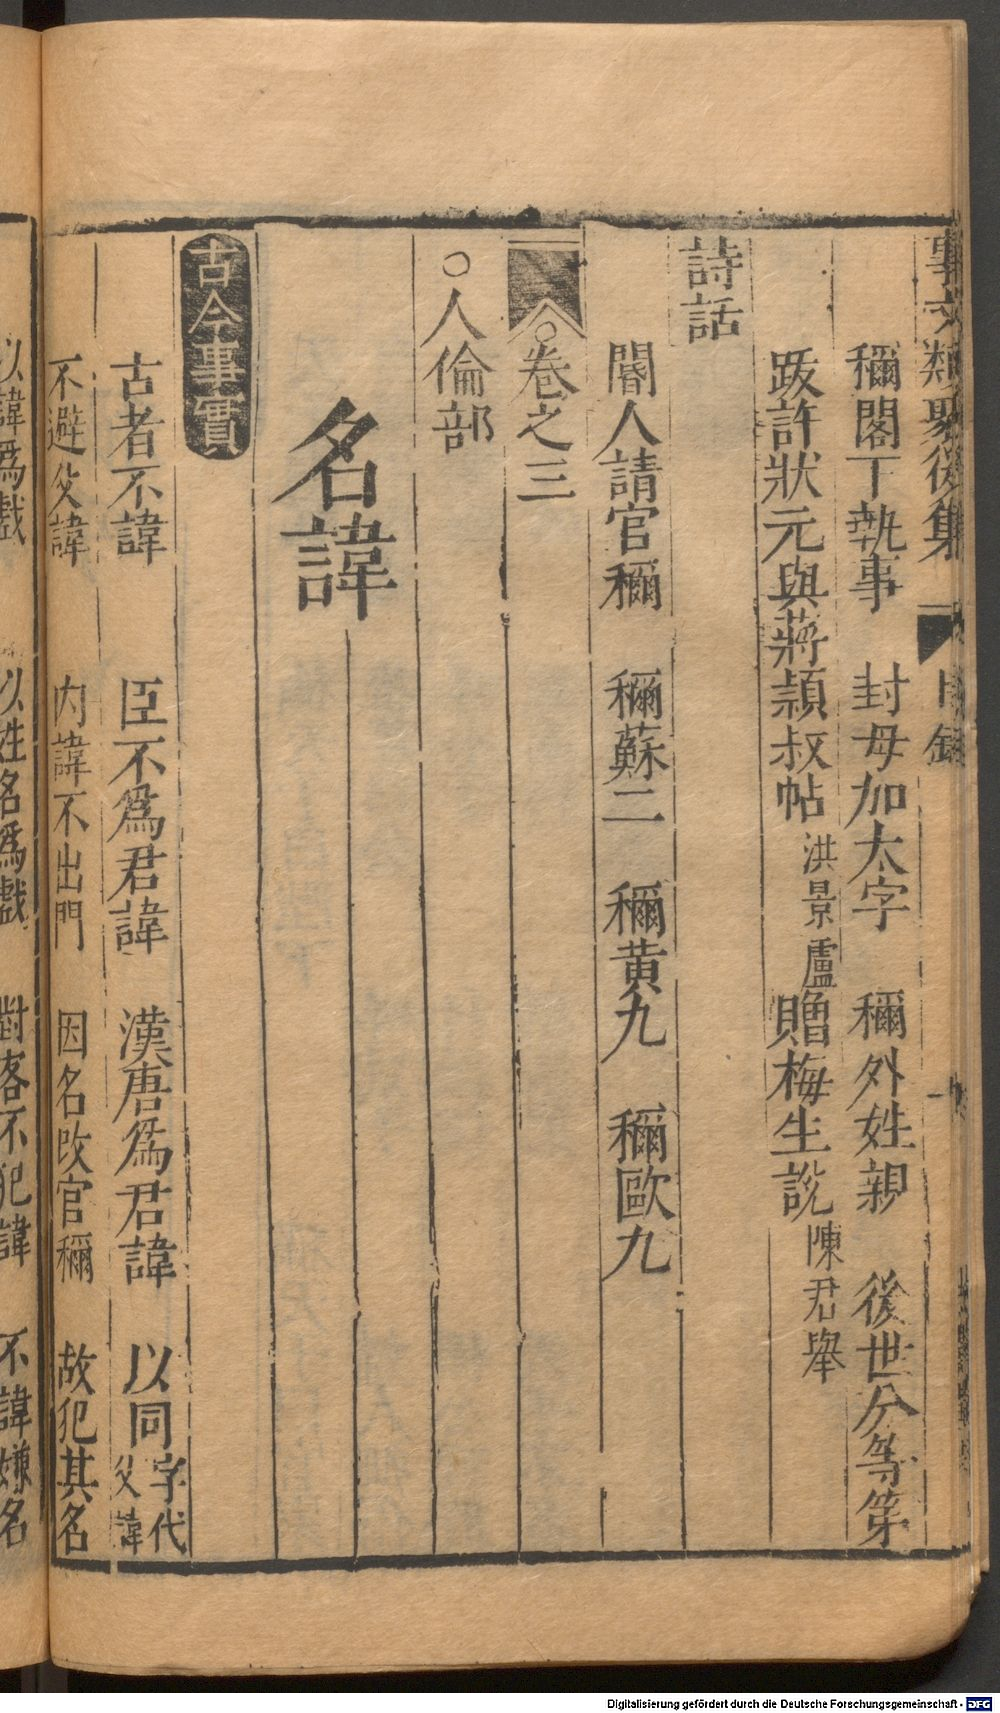 事文類聚後集 目録
稱閣下執事 封母加太字 稱外姓親 後世分等第
跋許狀元與蔣頴叔帖 洪景盧 贈梅生說 陳君舉
詩話
閽人請官稱 稱蘇二 稱黄九 稱歐九
○卷之三
○人倫部
名諱
古今事實
古者不諱 臣不爲君諱 漢唐爲君諱 以同字代父諱
不避父諱 内諱不出門 因名改官稱 故犯其名
以諱爲戲 以姓名爲戲 對客不犯諱 不諱嫌名
Digitalisierung gefördert durch die Deutsche Forschungsgemeinschaft - DFG